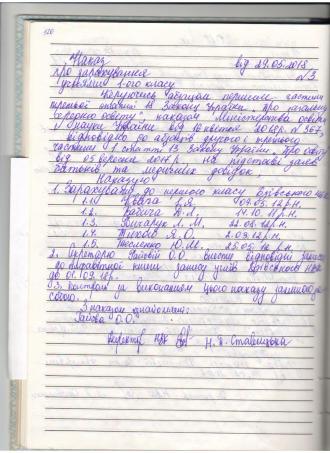 120
Наказ від 29.05.2018
про зарахування №3
учнями 1-ого класу
Керуючись абзацом першим частини
третьої статті 18 Закону України „про загальну
середню освіту", наказом Міністерства освіти
і науки України від 16 квітня 2018р. №367,
відповідно до абзаців другого і третього
частини 1 статті 13 Закону України „Про освіту"
від 05 вересня 2017р, на підставі заяв
батьків та медичних довідок,
Наказую:
1. Зарахувати до першого класу
1.1. 09.05.12р.н.
1.2. 14.10. р.н.
1.3. Бондарук Л. М. 22.06.12р.н.
1.4. Я. О. 2.09.12р.н.
1.5. Ю. М. 25.05. р.н.
2. Секретарю О.О. внести відповідні записи
до алфавітної книги запису учнів
до 01.09.18р.
3. Контроль за виконанням цього наказу залишаю за
собою.
З наказом ознайомлені:
О.О.
Директор НВК Н. В.